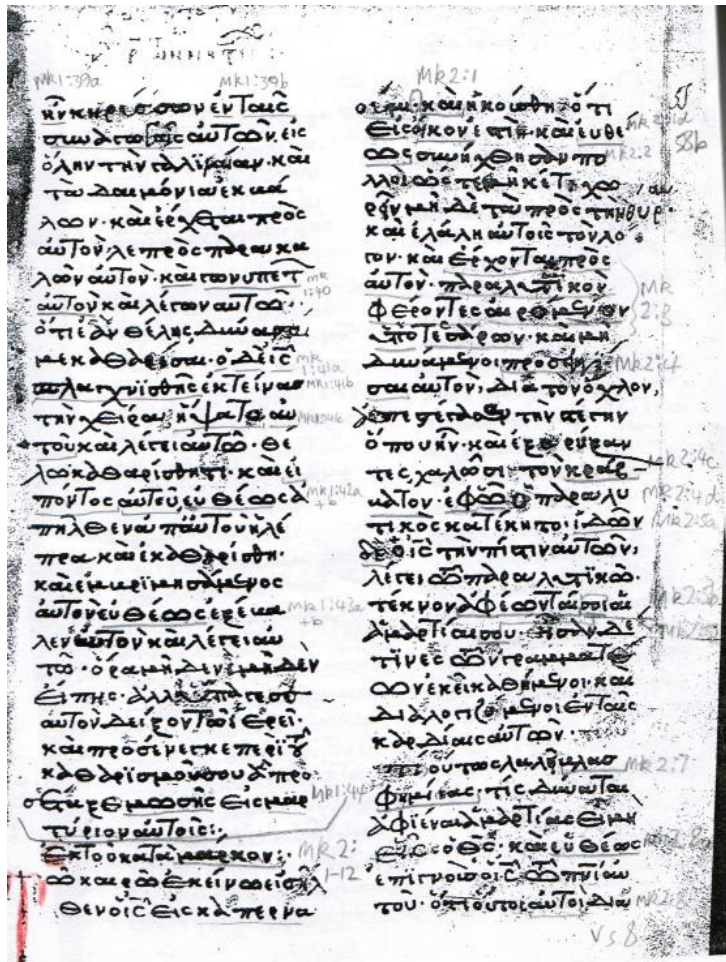 Mk1:39a Mk1:39b
ἦν κηρύσσων ἐν ταῖς
συναγωγαῖς αὐτῶν. εἰς
ὅλην τὴν γαλιλαίαν. καὶ
τὰ δαιμόνια ἐκβά
λλων. καὶ ἔρχεται πρὸς
αὐτὸν λεπρὸς παρακα
λῶν αὐτὸν. καὶ γονυπετ
mk 1:40
αὐτὸν καὶ λέγων αὐτῷ.
ὅτι ἐὰν θέλης δύνασαί
με καθαρίσαι. ὁ δὲ ις
mk 1:41a
σπλαγχνισθεὶς ἐκτείνας
mk1:41b
τὴν χεῖρα ἥψατο αὐ
τοῦ καὶ λέγει αὐτῷ. θέ
λω καθαρίσθητι. καὶ εἰ
πόντος αὐτοῦ εὐθέως ἀ
mk1:42a +b
πῆλθεν ἀπ αὐτοῦ ἡ λέ
πρα καὶ ἐκαθαρίσθη.
καὶ ἐμβριμησάμενος
αὐτὸν εὐθέως ἐξέβα
mk1:43a +b
λεν αὐτὸν καὶ λέγει αὐ
τῷ. ὅρα μηδενὶ μηδὲν
εἴπης. ἀλλ ὕπαγε σε
αὐτὸν δεῖξον τῷ ἱερεῖ.
καὶ προσένεγκε περὶ τοῦ
καθαρισμοῦ σου ἃ προ
σέταξε μωσῆς εἰς μαρ
Mk1:44
τύριον αὐτοῖς:
ἐκ τοῦ κατὰ μάρκον:
mk 2: 1-12
ῶ καιρῶ ἐκείνω εἰσῆλ
θεν ὁ ις εἰς καπερνα
Mk2:1
οὐμ. καὶ ἠκούσθη ὅτι
εἰς οἶκόν ἐστιν. καὶ εὐθέ
58b
ως συνήχθησαν πο
mk2:2
λλοὶ ὥστε μηκέτι χω
ρεῖν μηδὲ τὰ πρὸς τὴν θύρ.
καὶ ἐλάλει αὐτοῖς τὸν λό
γον. καὶ ἔρχονται πρὸς
αὐτὸν παραλυτικὸν
mk 2:3
φέροντες αἰρόμενον
ὑπὸ τεσσάρων. καὶ μὴ
δυνάμενοι προσεγγί
Mk2:4
σαι αὐτὸν, διὰ τὸν ὄχλον,
ἀπεστέγασαν τὴν στέγην
ὅπου ἦν. καὶ ἐξορύξαν
τες χαλῶσι τὸν κράβ
Mk2:4c
βατον. ἐφ ῶ ὁ παραλυ
Mk2:4d
τικὸς κατέκειτο. ἰδὼν
Mk2:5a
δὲ ὁ ις τὴν πίστιν αὐτῶν,
λέγει τῷ παραλυτικῷ.
τέκνον ἀφέωνταί σοι αἱ
Mk2:5b
ἁμαρτίαι σου. ἦσαν δέ
τινες τῶν γραμματέ
ων ἐκεῖ καθήμενοι. καὶ
διαλογιζόμενοι ἐν ταῖς
καρδίαις αὐτῶν.
τί οὗτος λαλεῖ βλασ
Mk2:7
φημίας, τίς δύναται
ἀφιέναι ἁμαρτίας εἰ μὴ
εἷς ὁ θς. καὶ εὐθέως
Mk2:8a
ἐπιγνοὺς ὁ ις τῷ πνι αὐ
τοῦ. ὅτι οὕτοι αὐτοὶ δια
Mk2:8
vs8